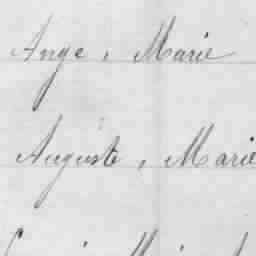 Ange, Marie
Auguste, Marie